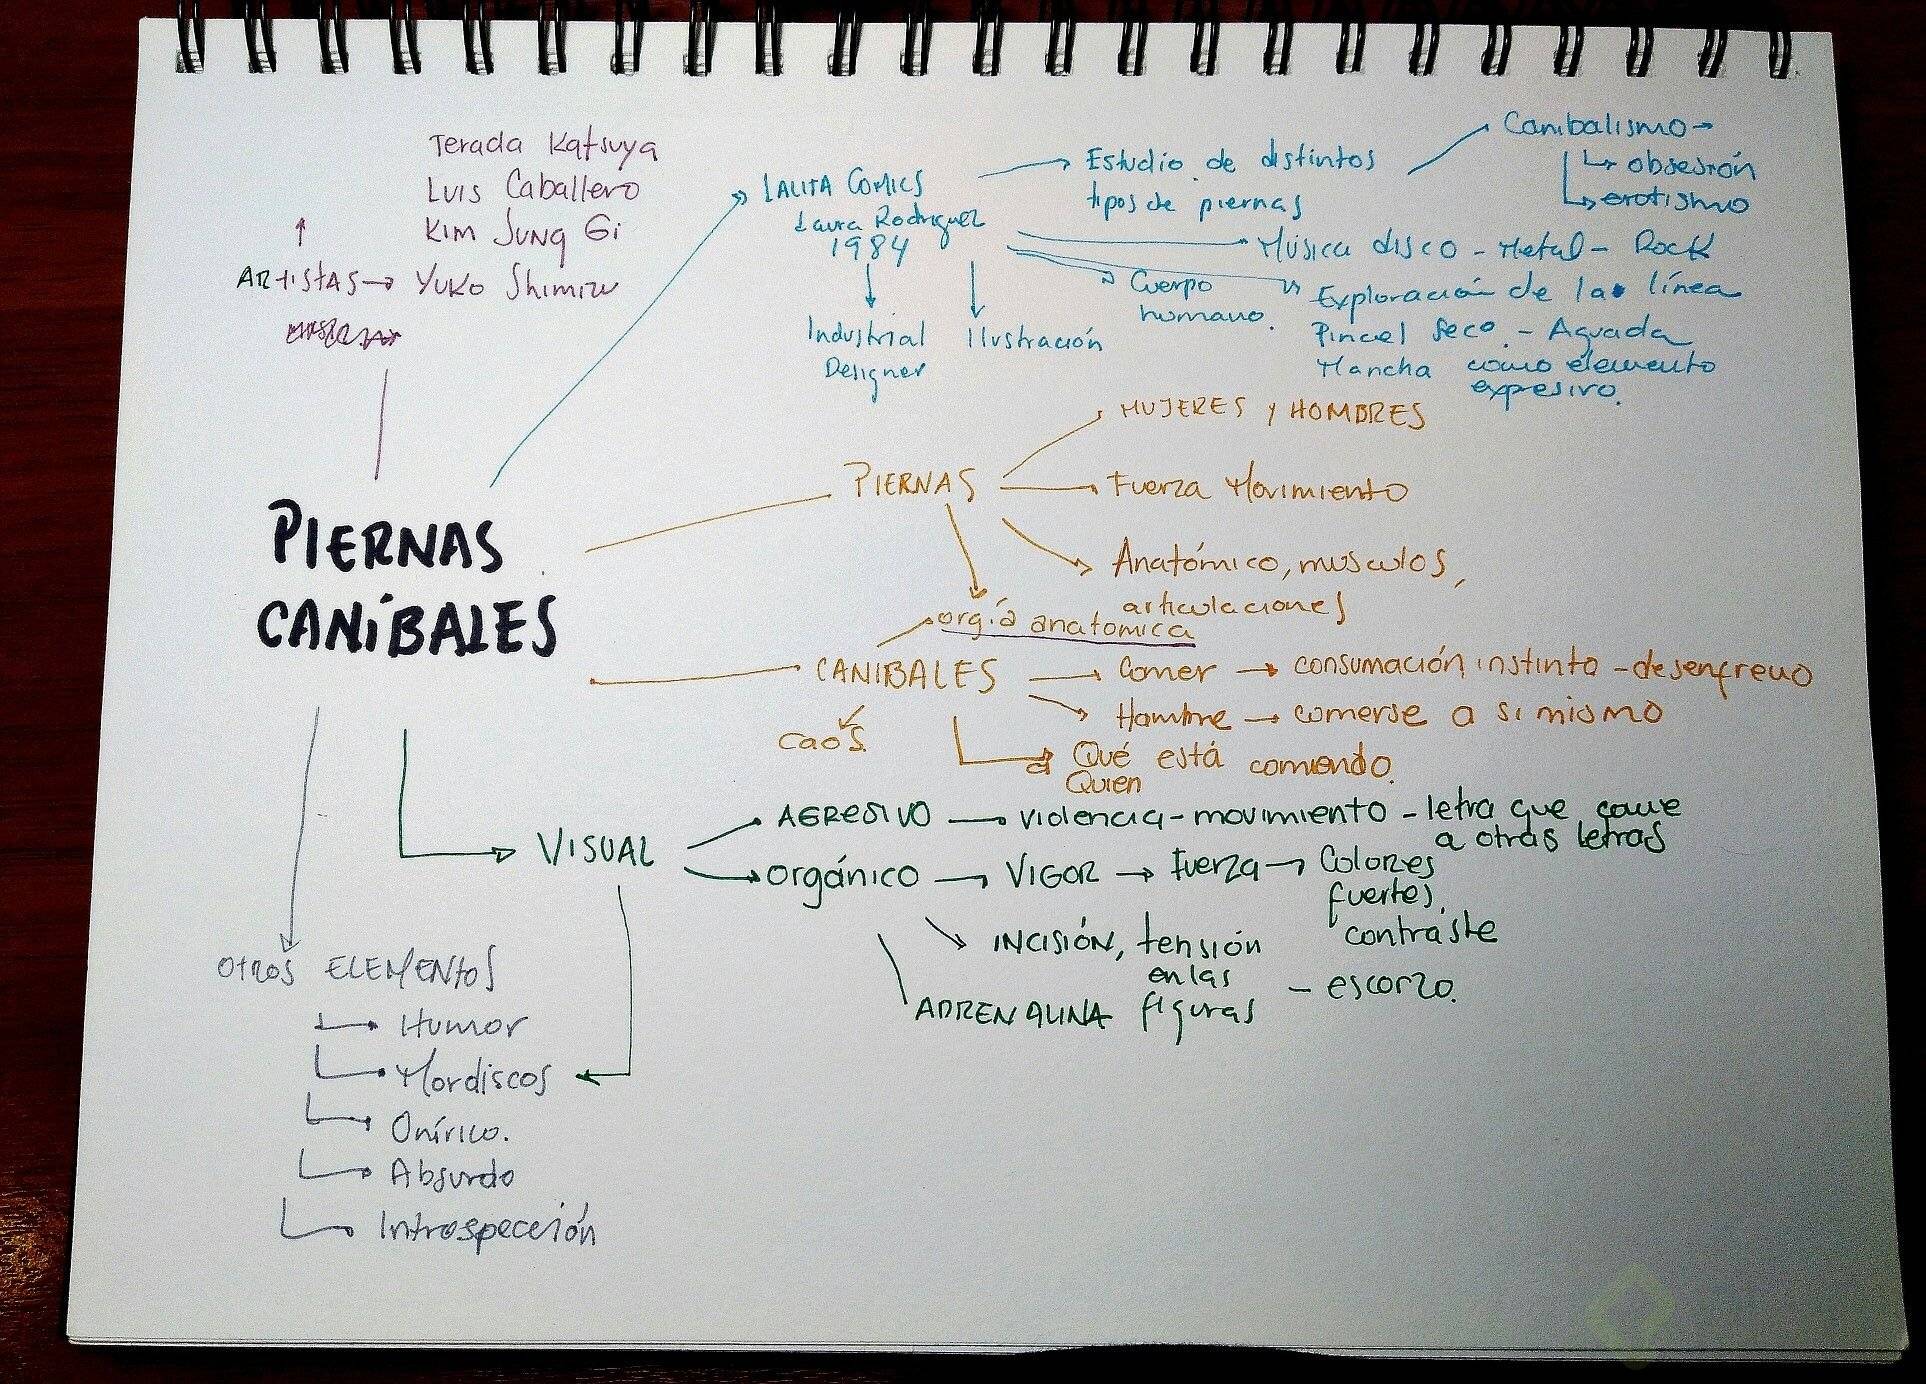 Terada Katsuya
Luis Caballero
Kim Jung Gi
ARtistAS → Yuko Shimizu
LALITA COMICS
Laura Rodriguez
1984
Industrial
Designer
Ilustración
Estudio de distintos
tipos de piernas
Canibalismo →
obsesión
erotismo
Música disco - Metal - Rock
Cuerpo
humano.
Exploración de la línea
Pincel seco. - Aguada
Mancha como elemento
expresivo.
PIERNAS
CANÍBALES
PIERNAS
MUJERES Y HOMBRES
Fuerza Movimiento
Anatómico, musculos,
articulaciones
orgía anatomica
CANIBALES
Comer → consumación instinto - desenfreno
Hambre → comerse a si mismo
caos.
Qué está comiendo.
a Quien
VISUAL
AGRESIVO — violencia - movimiento - letra que come
a otras letras
orgánico → VIGOR → Fuerza → Colores
fuertes,
contraste
INCISIÓN, tensión
en las
figuras - escorzo.
ADRENALINA
Otros ELEMENtos
Humor
Mordiscos
Onírico.
Absurdo
Introspección